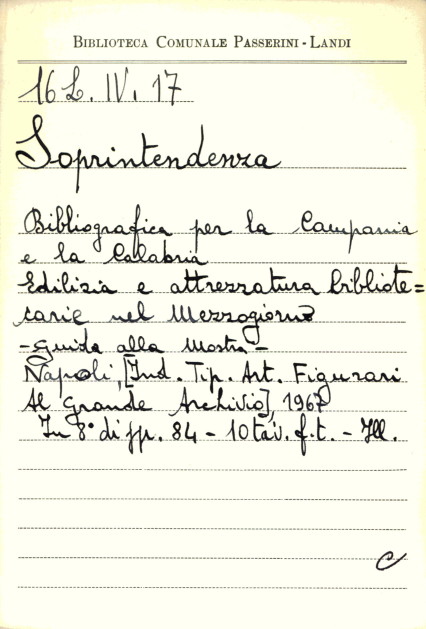 BIBLIOTECA COMUNALE PASSERINI - LANDI
16 L. IV. 17
Soprintendenza
Bibliografica per la Campania
e la Calabria
Edilizia e attrezzatura bibliote=
carie nel Mezzogiorno
- Guida alla Mostra -
Napoli, [Ind. Tip. Art. Figurari
Al Grande Archivio], 1967
In 8° di pp. 84 - 10 tav. f. t. - Ill.
C